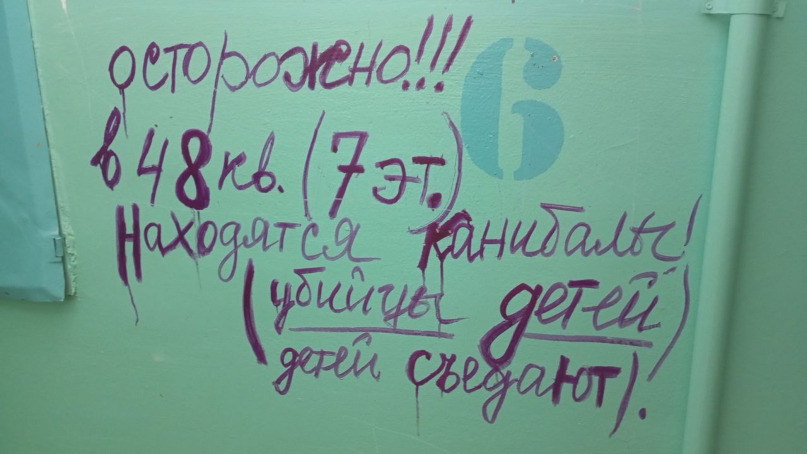 осторожно!!!
6
в 48 кв. (7 эт.)
Находятся канибалы!
(убийцы детей)
детей съедают).